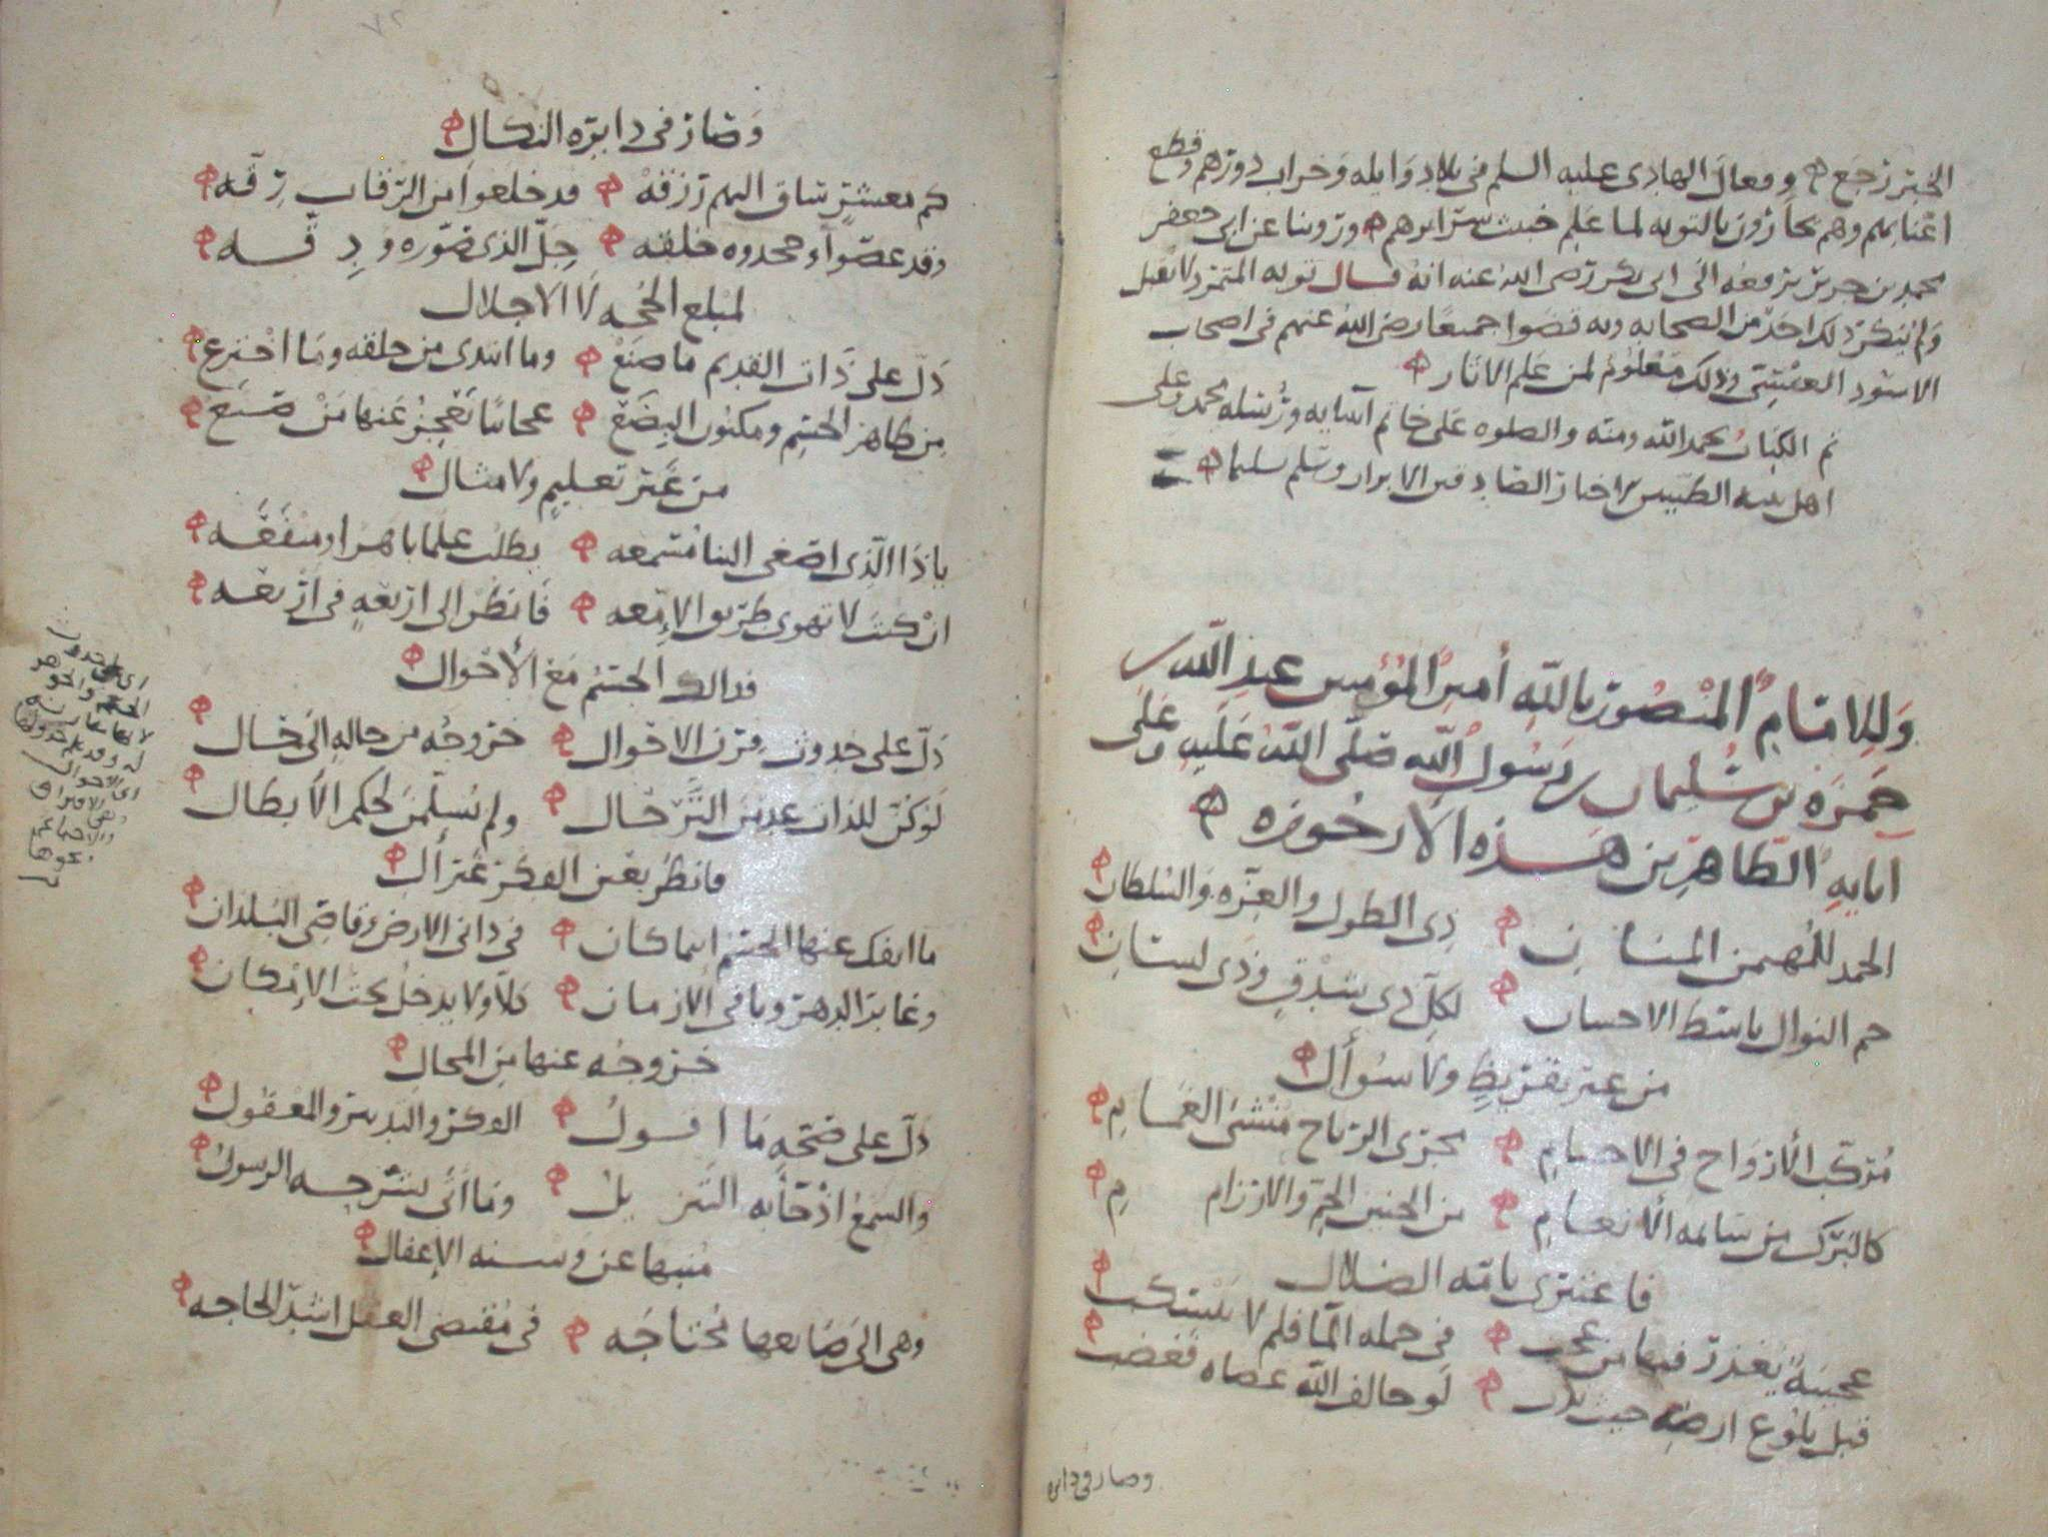 الخبر رجع وفعال الهادى عليه السلم فى بلاد وايله وخراب دورهم وقطع
اعنابهم وهم يجازون بالتوبه لما علم خبث سرايرهم وروينا عن ابى جعفر
محمد بن جرير يرفعه الى ابى بكر رضى الله عنه انه قال توبه المتمرد لا تقبل
ولم ينكر ذلك احد من الصحابه وبه قضوا جميعا رضى الله عنهم فى اصحاب
الاسود العنسى وذلك معلوم لمن علم الاثار
تم الكتاب بحمد الله ومنه والصلوه على خاتم انبيايه ورسله محمد وعلى
اهل بيته الطيبين الاخيار الصادقين الابرار وسلم تسليما
وللامام المنصور بالله أمير المؤمنين عبد الله بن
حمزه بن سليمان بن رسول الله صلى الله عليه وعلى
ابايه الطاهرين هذه الارجوزه
الحمد للمهيمن المنان ذى الطول والعزه والسلطان
جم النوال باسط الاحسان لكل ذى شدق وذى لسان
من غير تقريظ ولا سؤال
مركب الأرواح فى الاجسام مجرى الرياح منشئ الغمام
كالبرك من سايمه الأنعام من الحنين الجم والارزام
فاعتبرى يا امه الضلال
عجيبة يعذر فيها من عجب فى جمله الما فلم لا ينسكب
قبل بلوغ ارضه حيث ندب لو خالف الله عصاه فغضب
وصار فى دايره
وصار فى دايره النكال
كم معشر ساق اليهم رزقه قد خلعوا من الرقاب رقه
وقد عصوا وجحدوه خلقه جل الذى صوره ودقه
لمبلغ الحجه لا الاجلال
دل على ذات القديم ما صنع وما ابتدى من خلقه وما اخترع
من ظاهر الجسم ومكنون البضع عجايبا تعجز عنها من صنع
من غير تعليم ولا مثال
يا ذا الذى اصغى الينا مسمعه يطلب علما باهرا ومنفعه
ان كنت لا تهوى طريق الإمعه فانظر الى اربعه فى اربعه
فدالك الجسم مع الأحوال
دل على حدوث مر الاحوال خروجه من حاله الى حال
لو كن للذات عدمن الترحال ولم يسلمن لحكم الأبطال
فانظر بعين الفكر غير أل
ما انفك عنها الجسم اينما كان فى دانى الارض وقاصى البلدان
وغابر الدهر وباقى الازمان كلا ولا يدخل تحت الإمكان
خروجه عنها من المحال
دل على صحه ما اقول الفكر والتدبير والمعقول
والسمع اذ جا به التنزيل وما اتى يشرحه الرسول
منبها عن وسنه الإغفال
وهى الى صانعها محتاجه فى مقتضى العقل اشد الحاجه